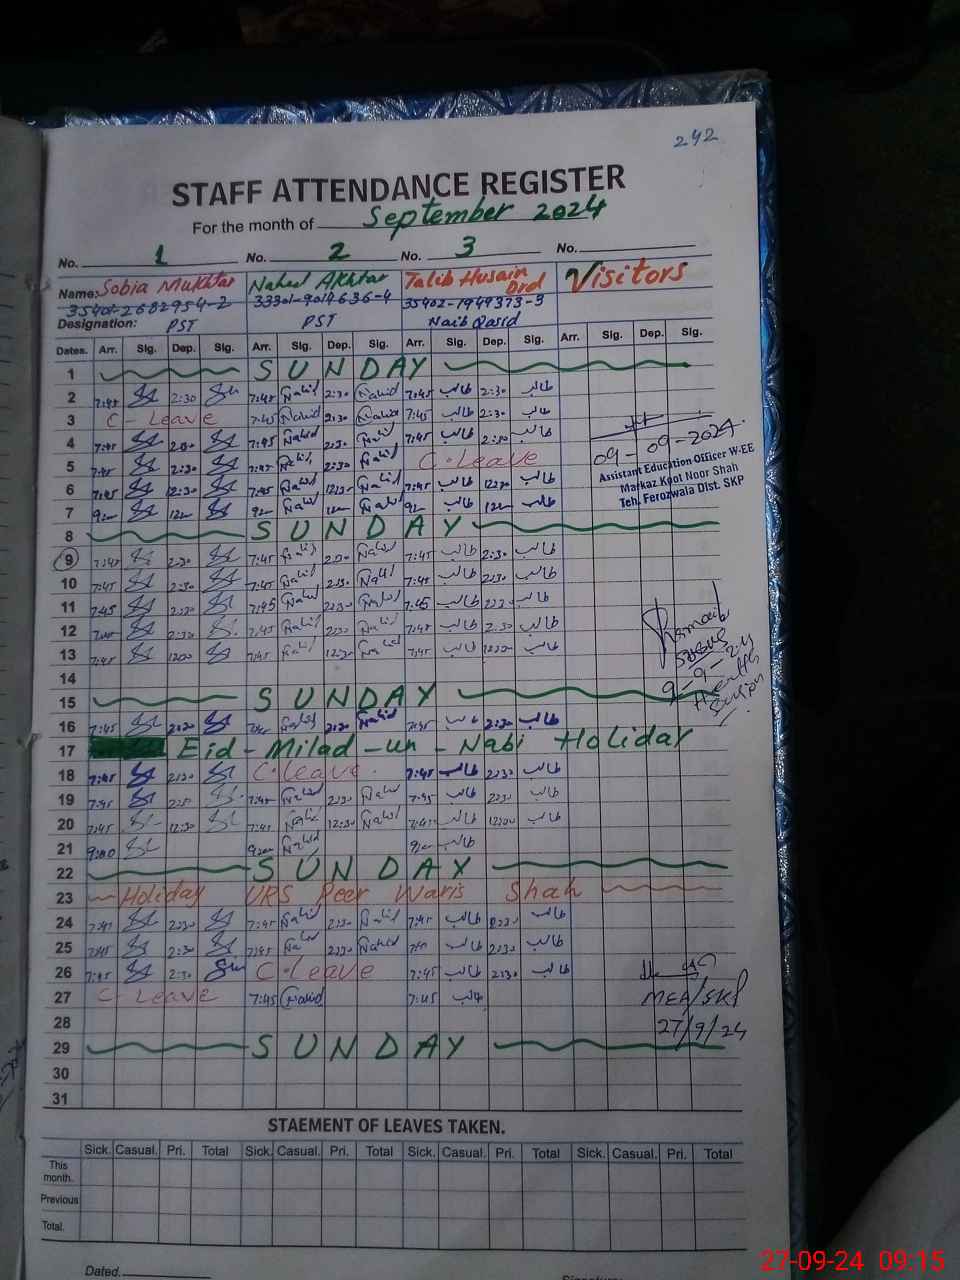 242
STAFF ATTENDANCE REGISTER
For the month of September 2024
No. 1 No. 2 No. 3 No.
Name: Sobia Mukhtar Nahed Akhtar Talib Husain Drd Visitors
35402-2682954-2 33301-9014636-4 35402-1949373-3
Designation: PST PST Naib Qasid
Dates. Arr. Sig. Dep. Sig. Arr. Sig. Dep. Sig. Arr. Sig. Dep. Sig. Arr. Sig. Dep. Sig.
1 SUNDAY
2 7:45 2:30 7:45 Nahid 2:30 Nahid 7:45 طالب 2:30 طالب
3 C-Leave 7:45 Nahid 2:30 Nahid 7:45 طالب 2:30 طالب
4 7:45 2:30 7:45 Nahid 2:30 Nahid 7:45 طالب 2:30 طالب
5 7:45 2:30 7:45 Nahid 2:30 Nahid C.Leave
6 7:45 12:30 7:45 Nahid 12:30 Nahid 7:45 طالب 1230 طالب
7 Nahid Nahid طالب طالب
8 SUNDAY
9 7:45 2:30 7:45 Nahid 2:30 Nahid 7:45 طالب 2:30 طالب
10 7:45 2:30 7:45 Nahid 2:30 Nahid 7:45 طالب 2:30 طالب
11 7:45 2:30 7:45 Nahid 2:30 Nahid 7:45 طالب 2:30 طالب
12 7:45 2:30 7:45 Nahid 2:30 Nahid 7:45 طالب 2:30 طالب
13 7:45 7:45 Nahid 12:30 Nahid 7:45 طالب 1230 طالب
14
15 SUNDAY
16 7:45 2:30 Nahid 2:30 Nahid 7:45 طالب 2:30 طالب
17 Eid-Milad-un-Nabi Holiday
18 7:45 2:30 C.Leave. 7:45 طالب 2:30 طالب
19 7:45 7:45 Nahid 2:30 Nahid 7:45 طالب 2:30 طالب
20 7:45 12:30 7:45 Nahid 12:30 Nahid 7:45 طالب طالب
21 9:00 Nahid طالب
22 SUNDAY
23 Holiday URS Peer Waris Shah
24 7:45 2:30 7:45 Nahid 2:30 Nahid 7:45 طالب 2:30 طالب
25 7:45 2:30 7:45 Nahid 2:30 Nahid طالب 2:30 طالب
26 7:45 2:30 C.Leave 7:45 طالب 2:30 طالب
27 C-Leave 7:45 Nahid 7:45 طالب
28
29 SUNDAY
30
31
09-09-2024
Assistant Education Officer W-EE
Markaz Koot Noor Shah
Teh. Ferozwala Dist. SKP
9-9-24
MEA/SKP
27/9/24
STAEMENT OF LEAVES TAKEN.
Sick. Casual. Pri. Total Sick. Casual. Pri. Total Sick. Casual. Pri. Total Sick. Casual. Pri. Total
This month.
Previous
Total.
Dated.
27-09-24 09:15